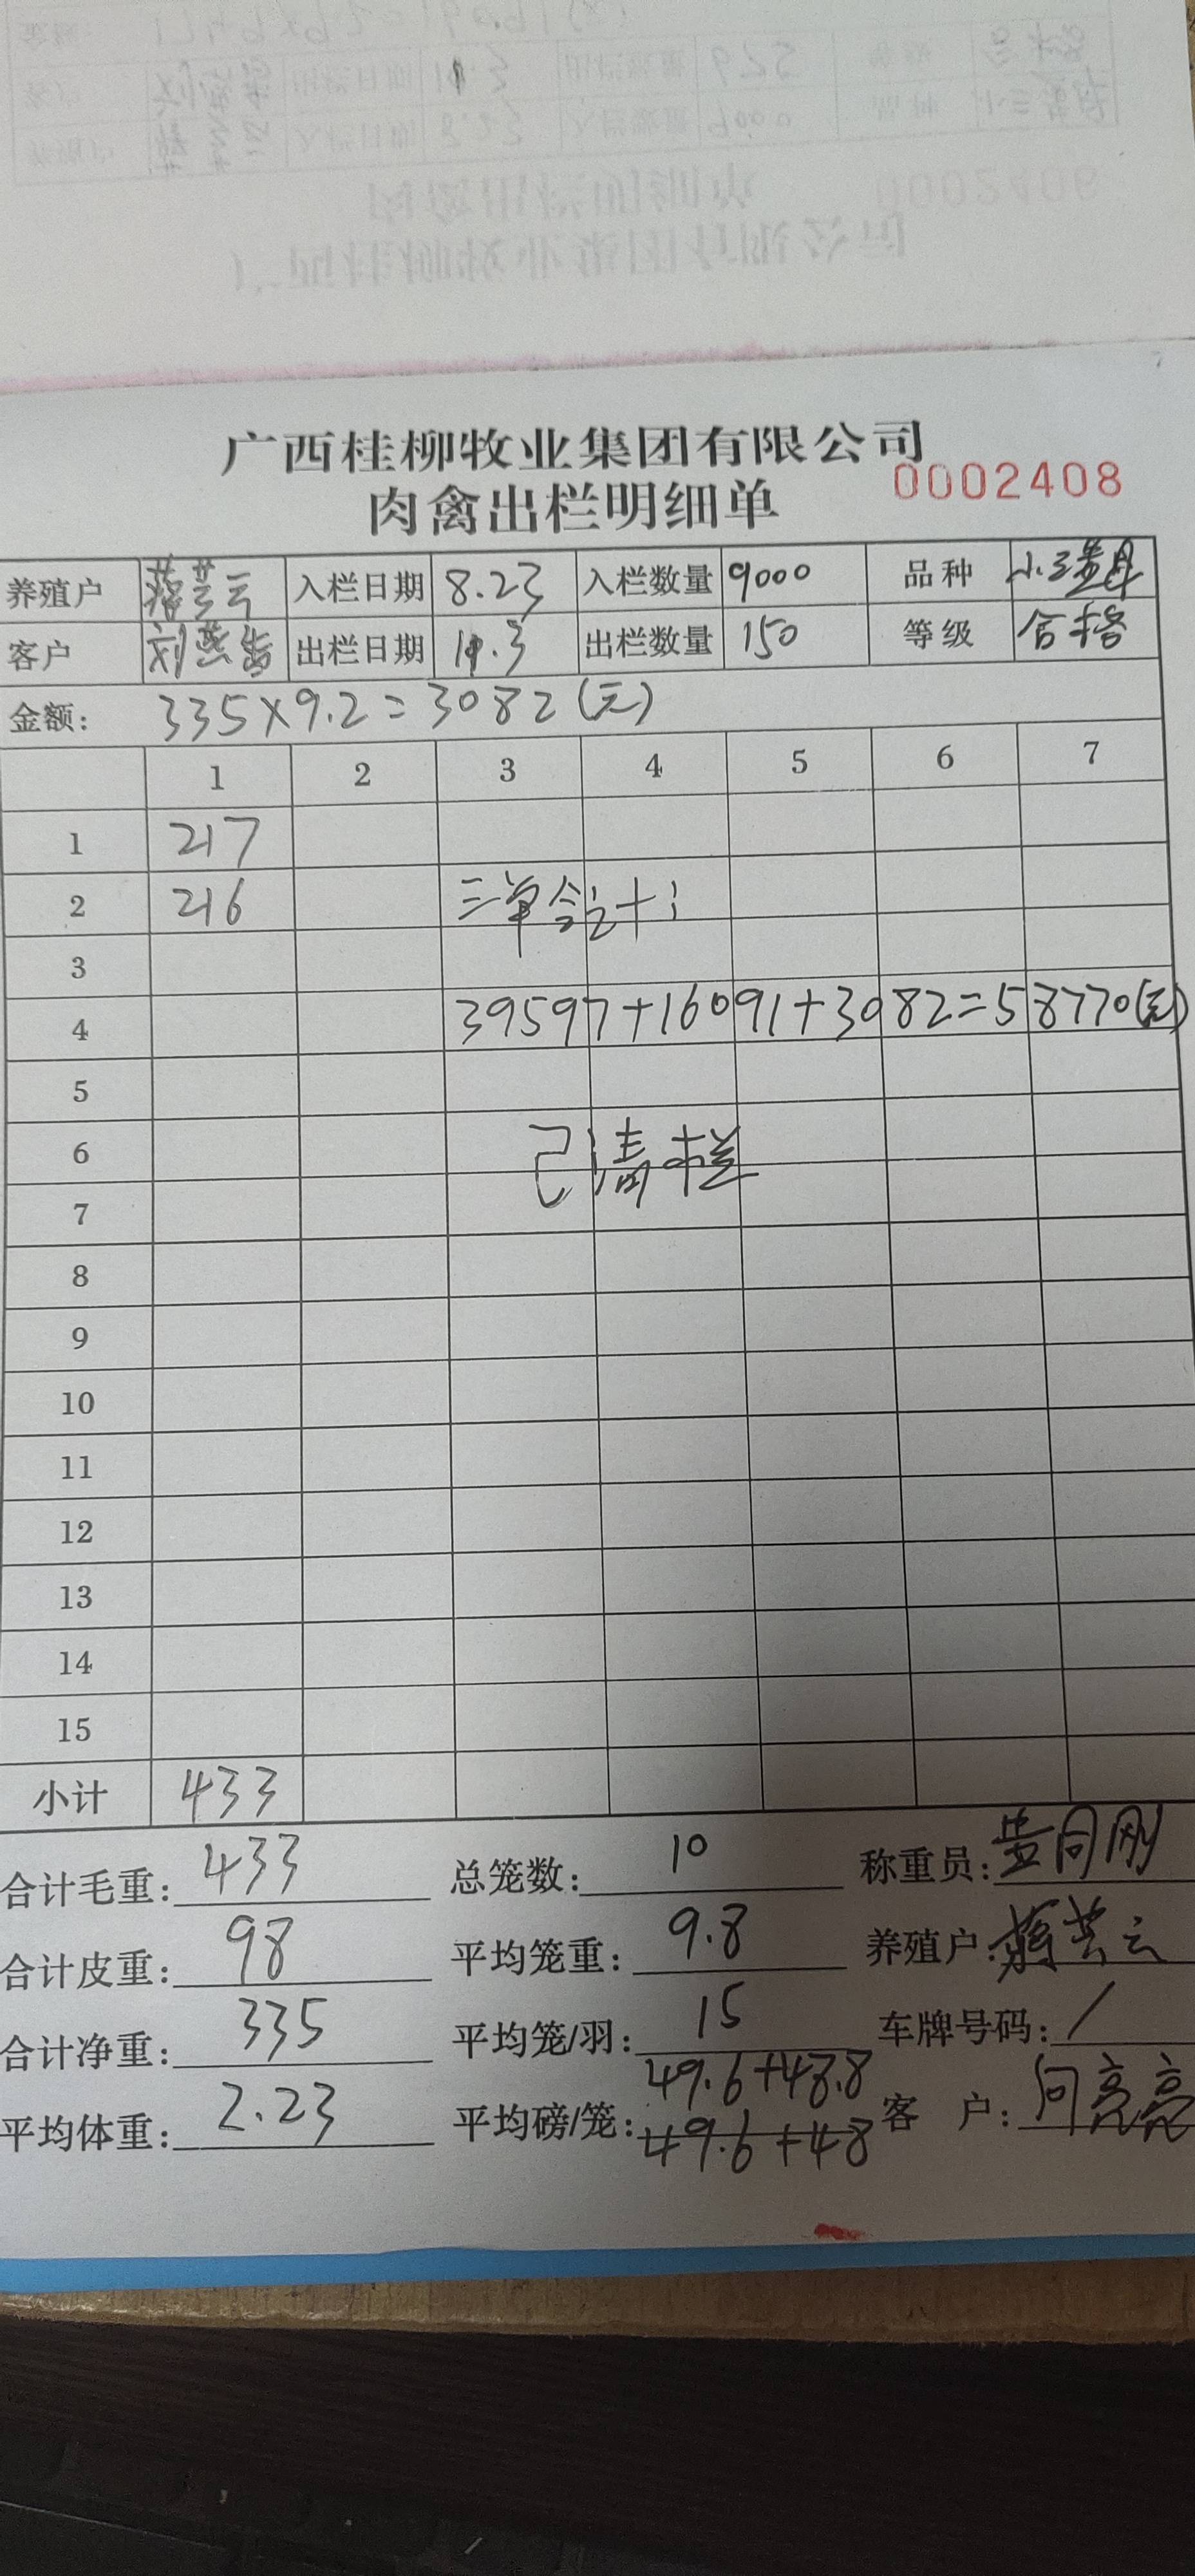 广西桂柳牧业集团有限公司
肉禽出栏明细单 0002408
养殖户 蒋兰云 入栏日期 8.23 入栏数量 9000 品种
客户 刘燕 出栏日期 11.3 出栏数量 150 等级 合格
金额: 335×9.2=3082(元)
1 2 3 4 5 6 7
1 217
2 216 三单合计:
3
4 39597+16091+3082=58770(元)
5
6 已清栏
7
8
9
10
11
12
13
14
15
小计 433
合计毛重: 433 总笼数: 10 称重员:
合计皮重: 98 平均笼重: 9.8 养殖户: 蒋兰云
合计净重: 335 平均笼/羽: 15 车牌号码: /
49.6+48.8
平均体重: 2.23 平均磅/笼: 客 户: 向亮亮
49.6+48